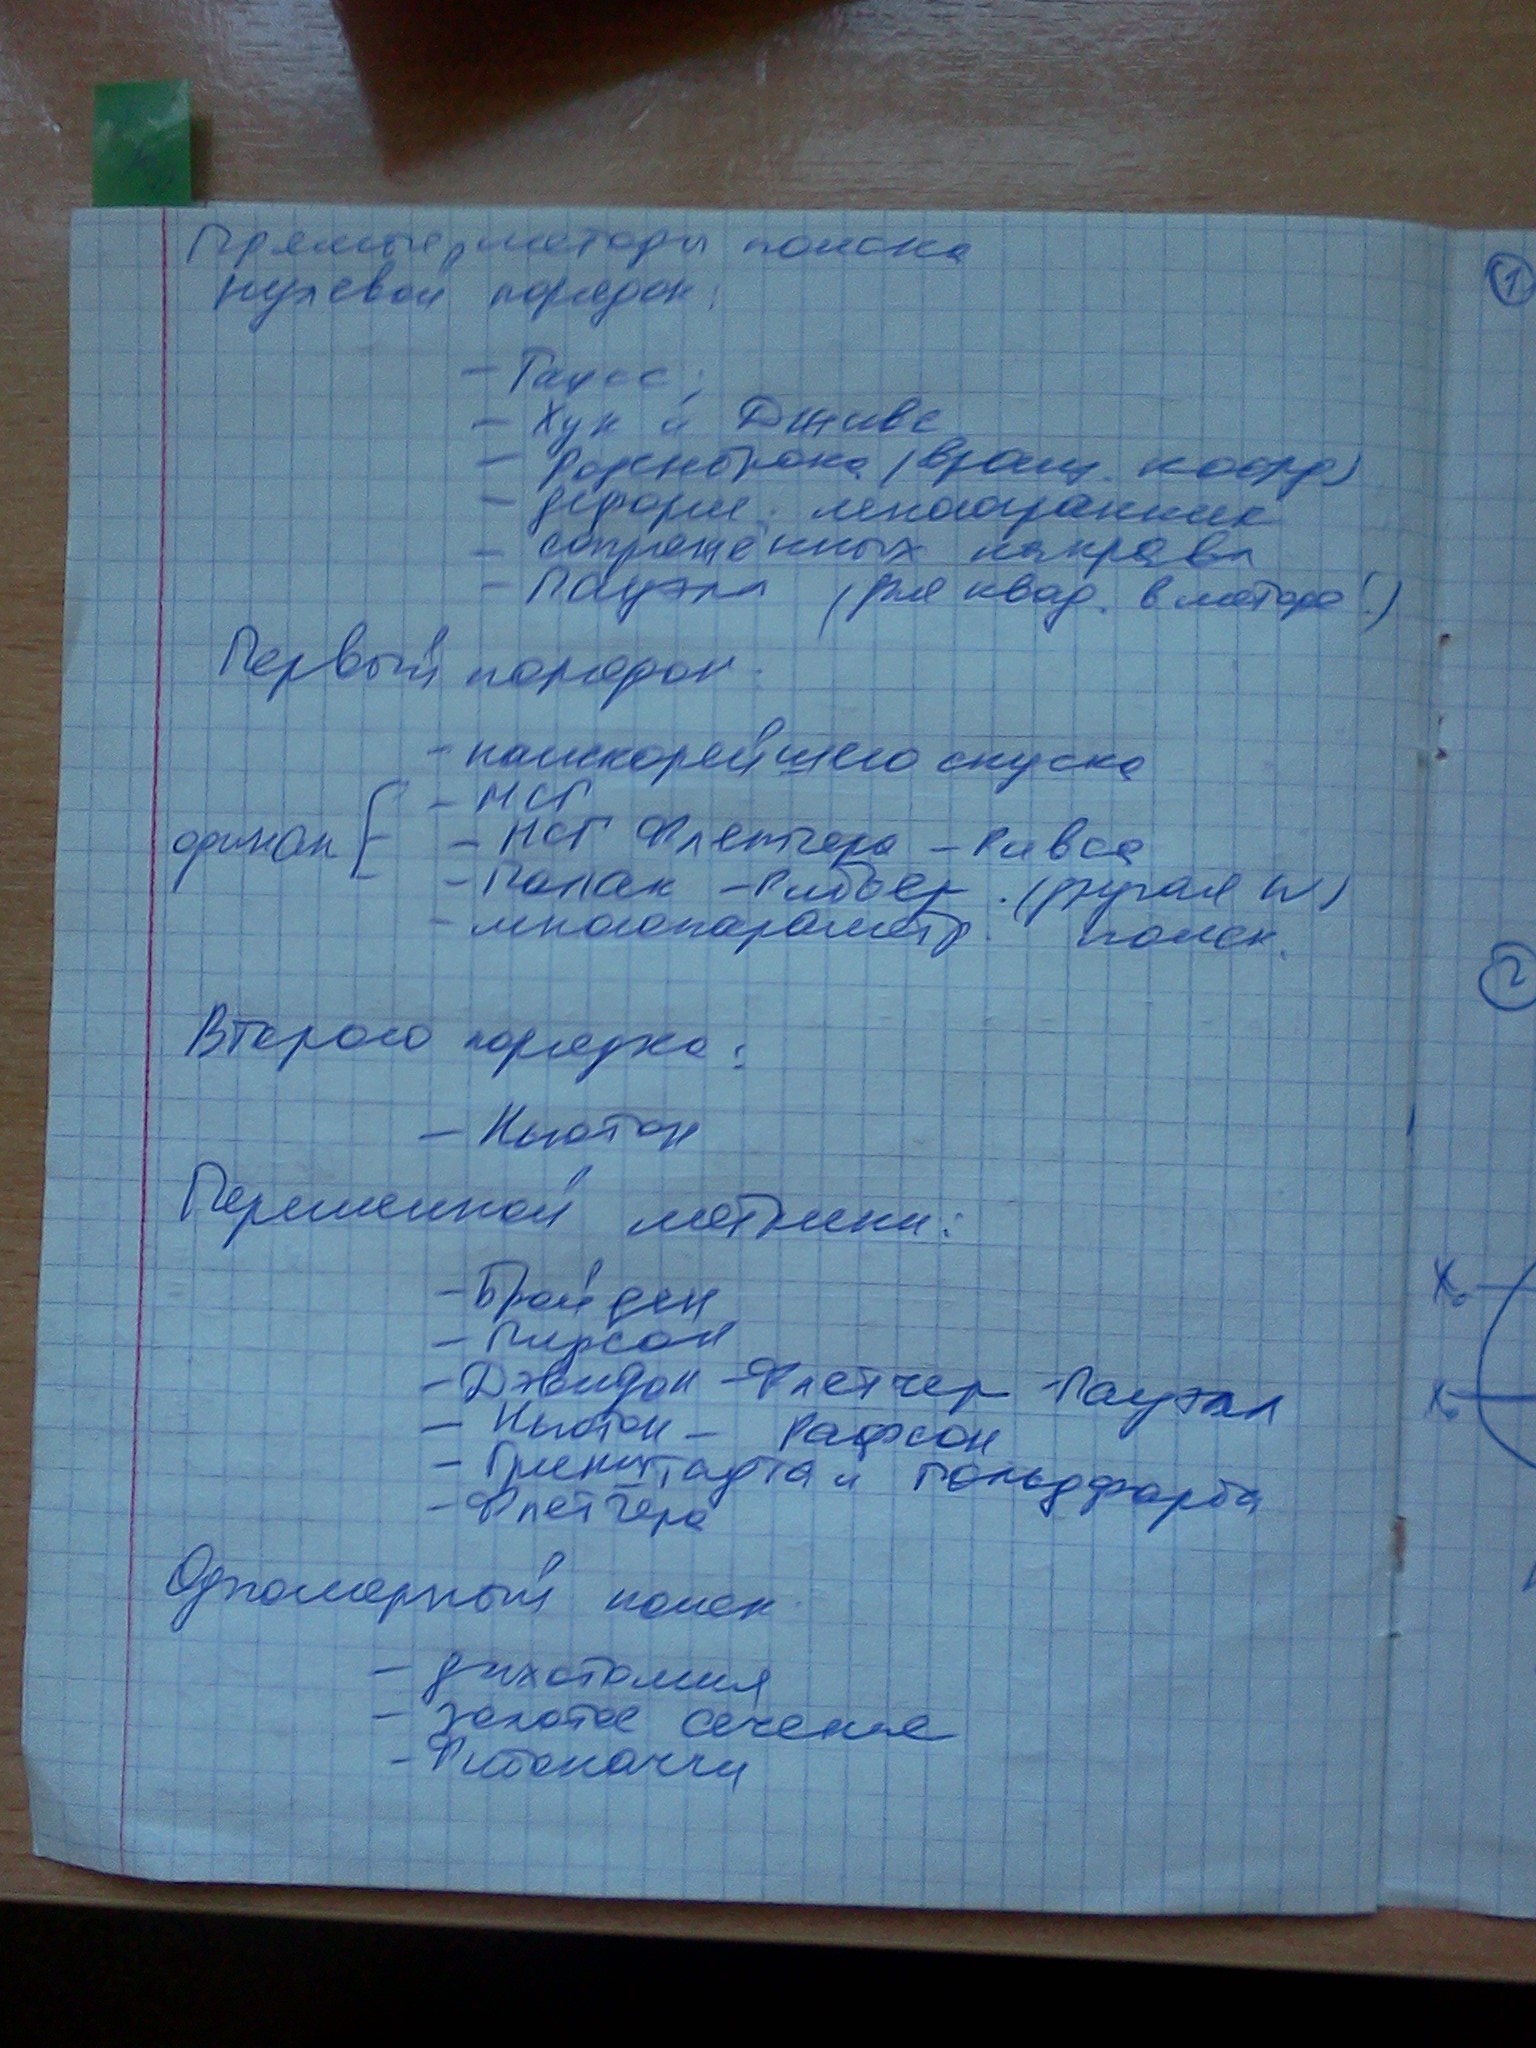 Прямые, методы поиска
нулевой порядок:
- Гаусс;
- Хук и Дживс
- Розенброка (вращ. коорд)
- деформ. многогранник
- сопряжённых направл
- Пауэлл (для квад. в методе!)
Первый порядок.
- наискорейшего спуска
- МСГ
одинак { - МСГ Флетчера - Ривса
- Полак - Рибьер. (другая w)
- многопараметр. поиск.
Второго порядка:
- Ньютон
Переменной метрики:
- Бройден
- Пирсон
- Дэвидон - Флетчер - Пауэлл
- Ньютон - Рафсон
- Гринштадта и Гольдфарба
- Флетчера
Одномерный поиск.
- дихотомия
- золотое сечение
- Фибоначчи
1
2
X₀
X₀